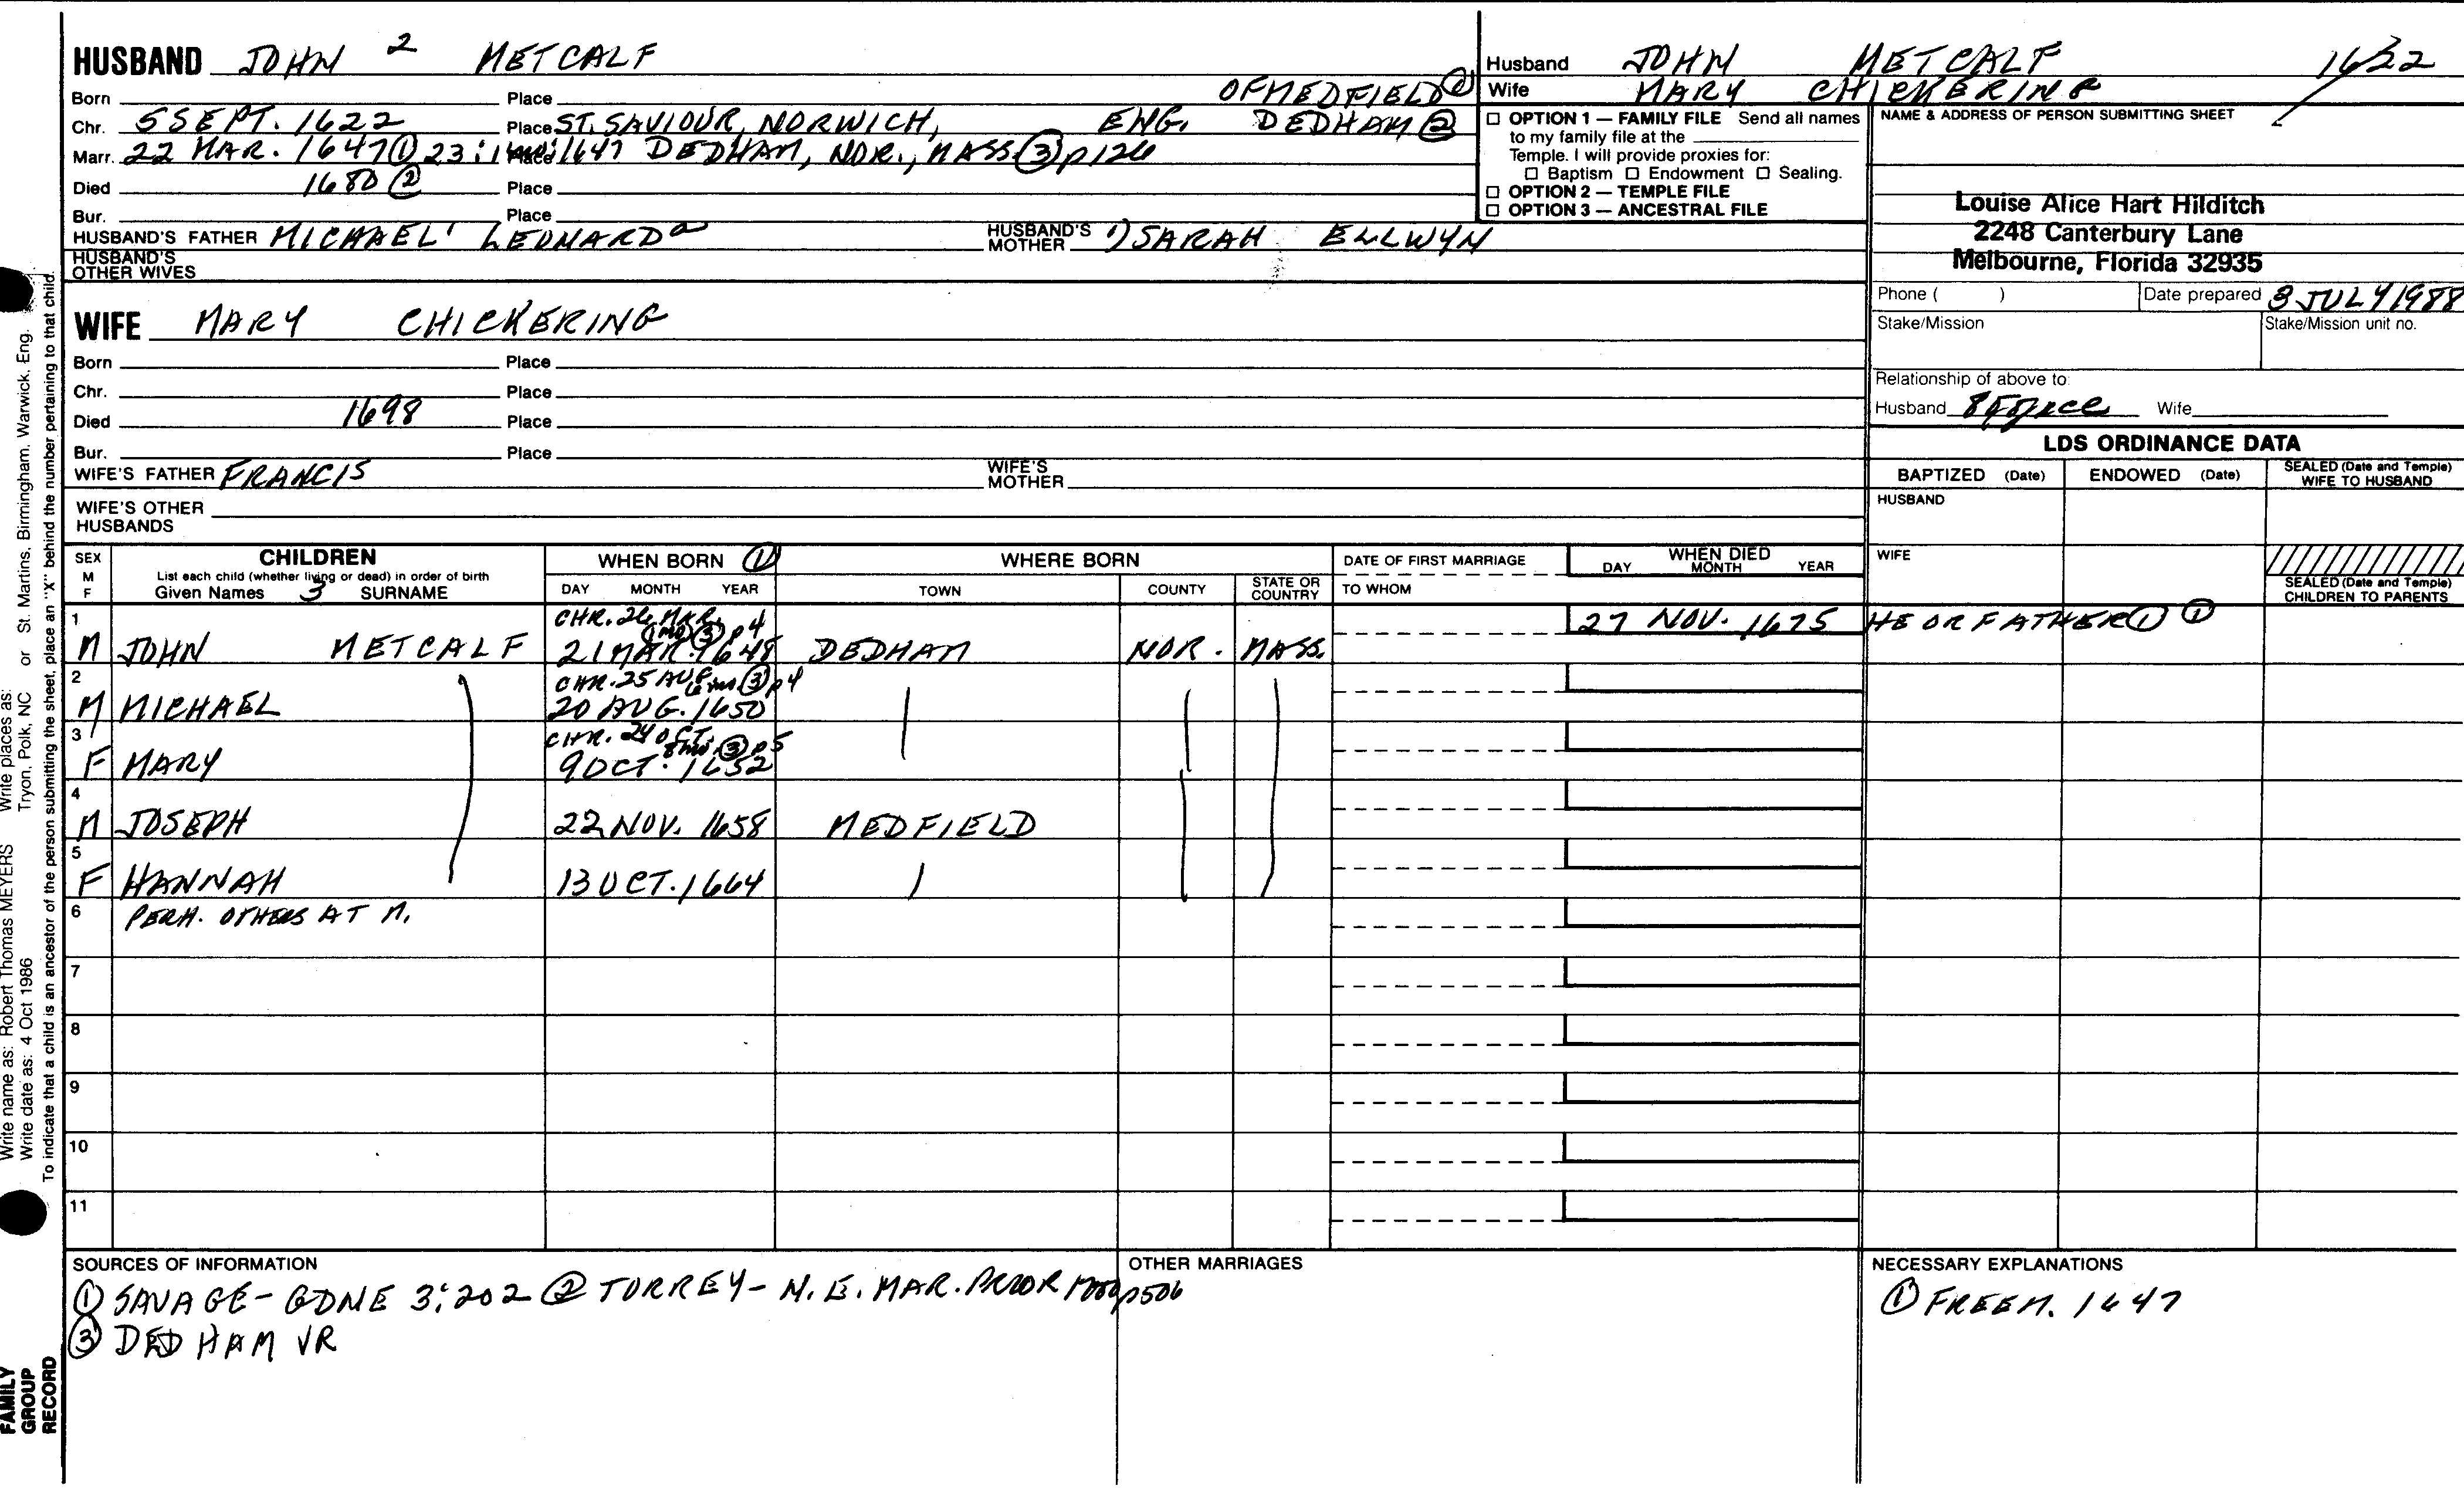 HUSBAND JOHN 2 METCALF
Born Place OF MEDFIELD ①
Chr. 5 SEPT. 1622 Place ST. SAVIOUR, NORWICH, ENG. DEDHAM ②
Marr. 22 MAR. 1647 ① 23:1 mo: 1647 Place DEDHAM, NOR., MASS ③ p 126
Died 1680 ② Place
Bur. Place
HUSBAND'S FATHER MICHAEL 1 LEONARD a HUSBAND'S MOTHER 1) SARAH ELLWYN
HUSBAND'S OTHER WIVES
Husband JOHN METCALF 1622
Wife MARY CHICKERING
OPTION 1 — FAMILY FILE Send all names
to my family file at the
Temple. I will provide proxies for:
Baptism Endowment Sealing.
OPTION 2 — TEMPLE FILE
OPTION 3 — ANCESTRAL FILE
NAME & ADDRESS OF PERSON SUBMITTING SHEET
Louise Alice Hart Hilditch
2248 Canterbury Lane
Melbourne, Florida 32935
Phone ( ) Date prepared 3 JULY 1988
Stake/Mission Stake/Mission unit no.
Relationship of above to:
Husband Wife
WIFE MARY CHICKERING
Born Place
Chr. Place
Died 1698 Place
Bur. Place
WIFE'S FATHER FRANCIS WIFE'S MOTHER
WIFE'S OTHER HUSBANDS
LDS ORDINANCE DATA
BAPTIZED (Date) ENDOWED (Date) SEALED (Date and Temple) WIFE TO HUSBAND
HUSBAND
WIFE
SEALED (Date and Temple) CHILDREN TO PARENTS
SEX M F
CHILDREN
List each child (whether living or dead) in order of birth
Given Names 3 SURNAME
WHEN BORN ①
DAY MONTH YEAR
WHERE BORN
TOWN COUNTY STATE OR COUNTRY
DATE OF FIRST MARRIAGE
TO WHOM
WHEN DIED
DAY MONTH YEAR
1 CHR. 26 MAR. (1 mo) ③ p 4 27 NOV. 1675 HE OR FATHER ① ①
M JOHN METCALF 21 MAR. 1648 DEDHAM NOR. MASS.
2 CHR. 25 AUG. 6 mo. ③ p 4
M MICHAEL 20 AUG. 1650
3 CHR. 24 OCT. 8 mo. ③ p 5
F MARY 9 OCT. 1652
4
M JOSEPH 22 NOV. 1658 MEDFIELD
5
F HANNAH 13 OCT. 1664
6 PERH. OTHERS AT M.
7
8
9
10
11
SOURCES OF INFORMATION
① SAVAGE - GDNE 3:202 ② TORREY - N. E. MAR. PRIOR 1700 p506
③ DEDHAM VR
OTHER MARRIAGES
NECESSARY EXPLANATIONS
① FREEM. 1647
Write name as: Robert Thomas MEYERS Write places as: Tryon, Polk, NC or St. Martins, Birmingham, Warwick, Eng.
Write date as: 4 Oct 1986
To indicate that a child is an ancestor of the person submitting the sheet, place an "X" behind the number pertaining to that child.
FAMILY
GROUP
RECORD